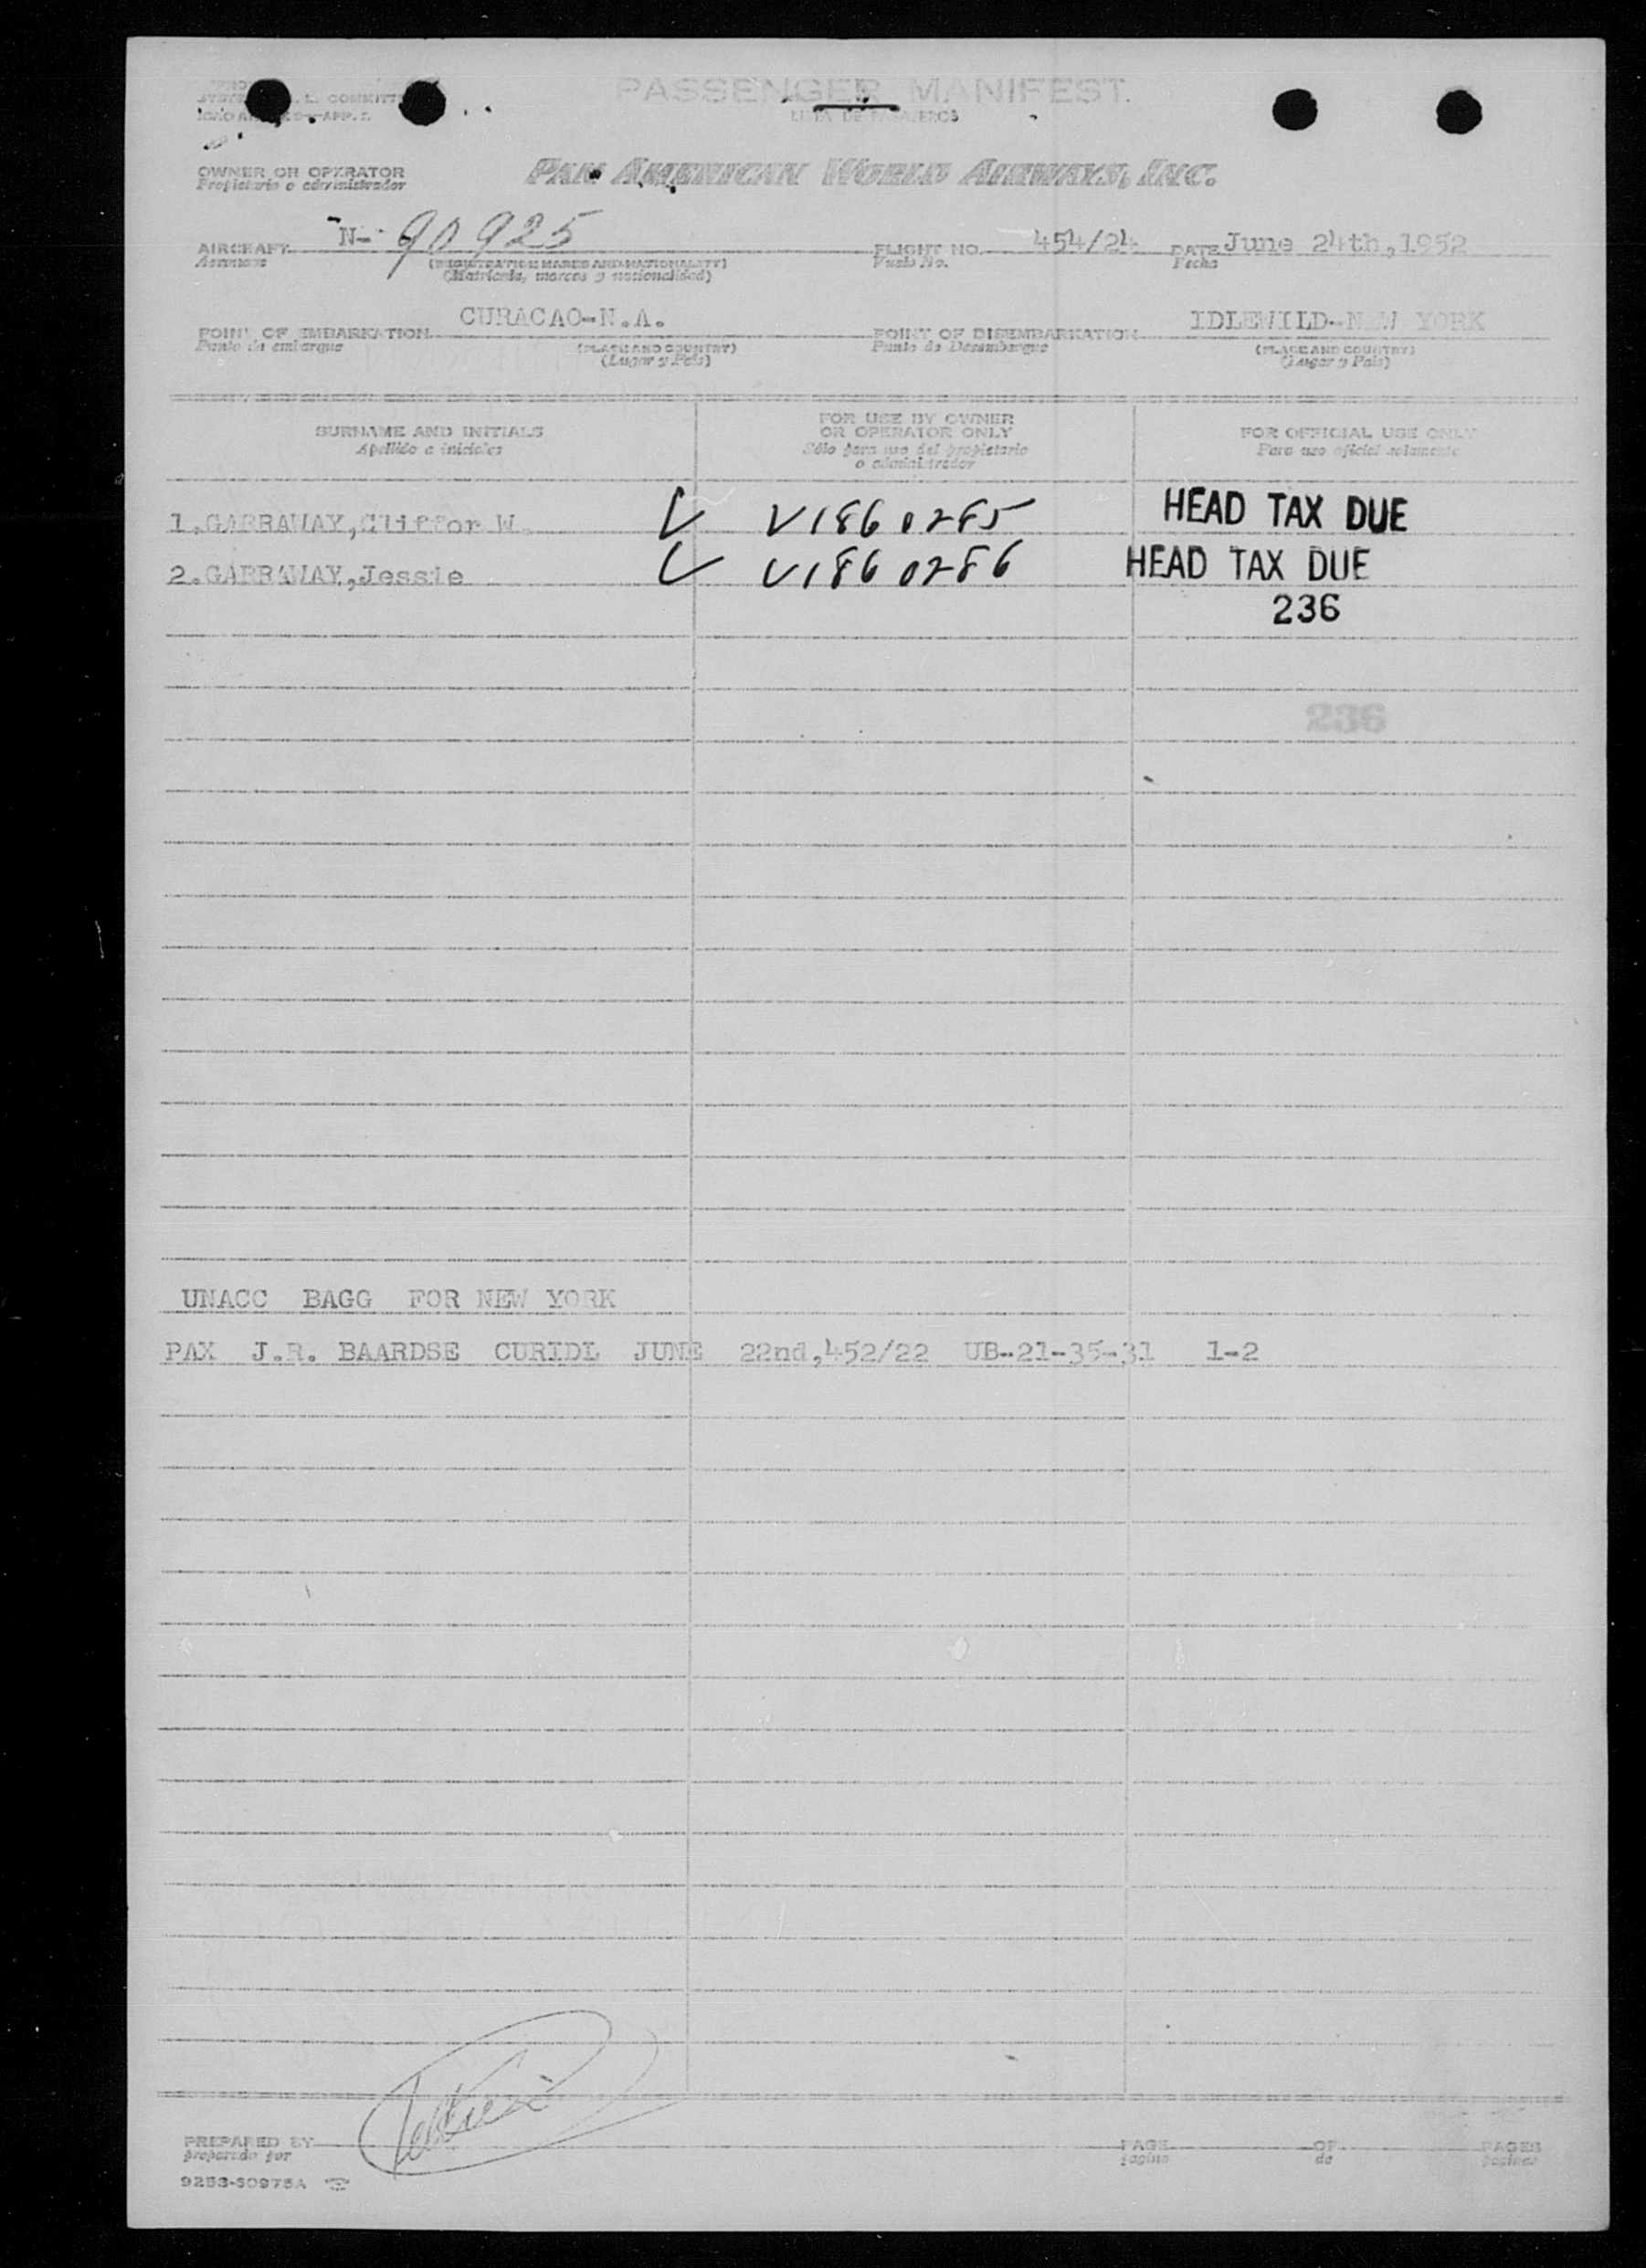 PASSENGER MANIFEST
LISTA DE PASAJEROS
OWNER OR OPERATOR
Propietario o administrador
PAN AMERICAN WORLD AIRWAYS, INC.
AIRCRAFT N- 90925 FLIGHT NO. 454/24 DATE June 24th,1952
Aeronave (REGISTRATION MARKS AND NATIONALITY) Vuelo No. Fecha
(Matricula, marcas y nacionalidad)
POINT OF EMBARKATION CURACAO-N.A. POINT OF DISEMBARKATION IDLEWILD-NEW YORK
Punto de embarque (PLACE AND COUNTRY) Punto de Desembarque (PLACE AND COUNTRY)
(Lugar y Pais) (Lugar y Pais)
SURNAME AND INITIALS FOR USE BY OWNER OR OPERATOR ONLY FOR OFFICIAL USE ONLY
Apellido e iniciales Sólo para uso del propietario o administrador Para uso oficial solamente
1.GARRAWAY,Cliffor W. V V1860285 HEAD TAX DUE
2.GARRAWAY,Jessie V V1860286 HEAD TAX DUE
236
236
UNACC BAGG FOR NEW YORK
PAX J.R. BAARDSE CURIDL JUNE 22nd,452/22 UB-21-35-31 1-2
PREPARED BY PAGE OF PAGES
preparado por pagina de paginas
9253-50975A